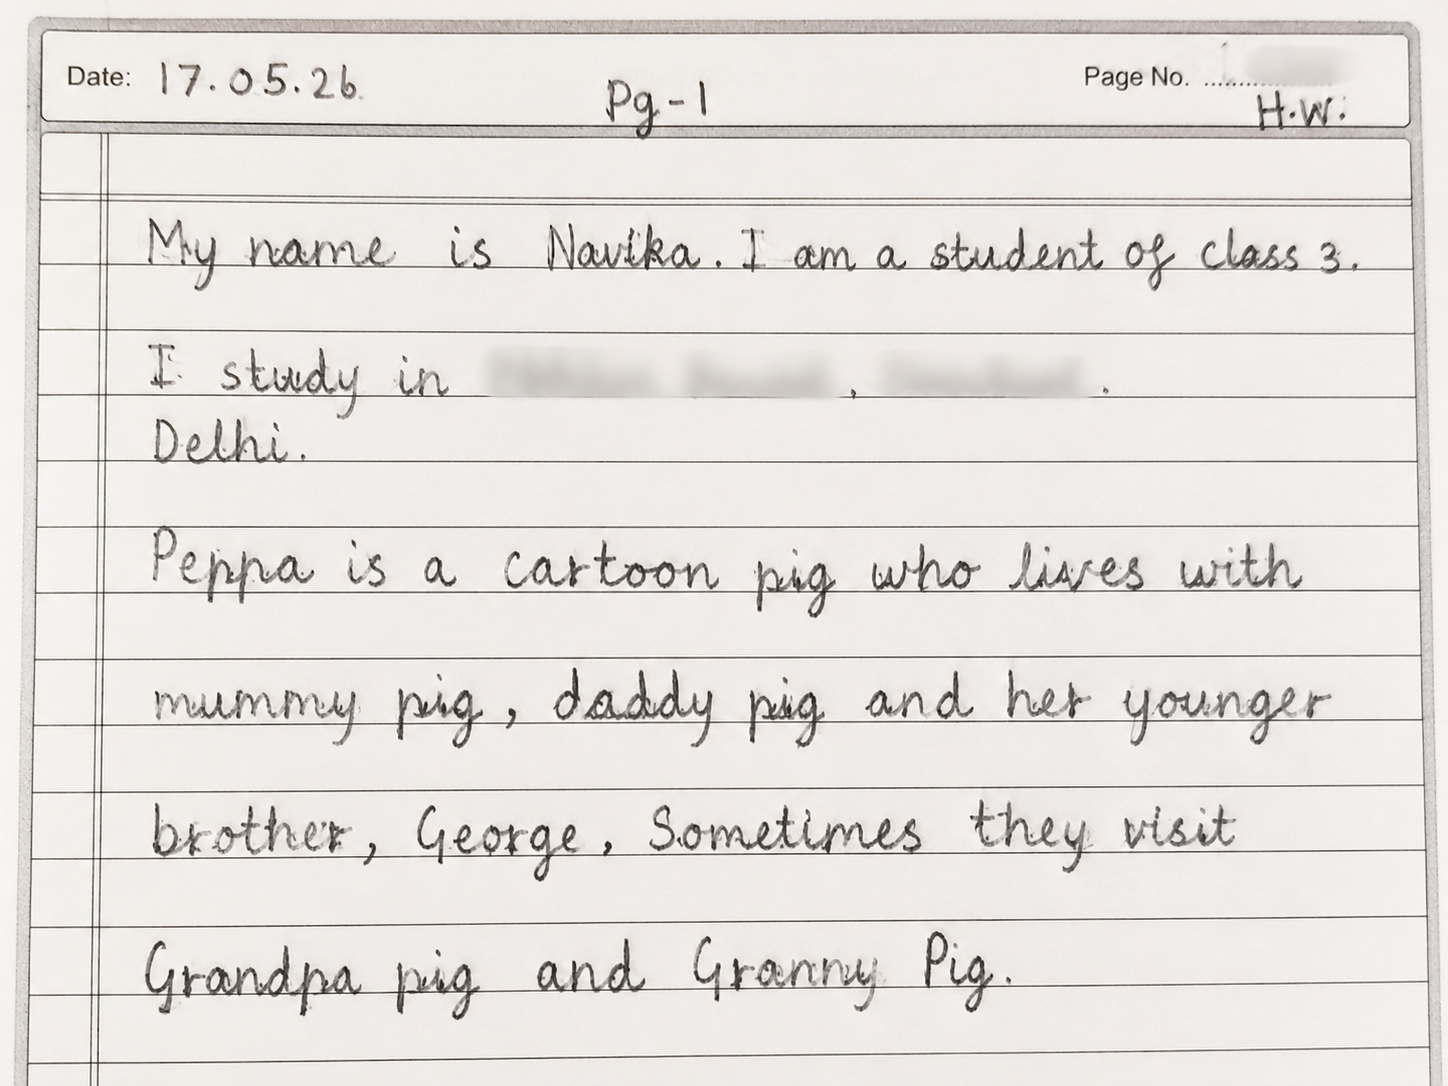 Date: 17.05.26
Pg-1
Page No.
H.W.
My name is Navika. I am a student of class 3.
I study in , .
Delhi.
Peppa is a cartoon pig who lives with
mummy pig, daddy pig and her younger
brother, George, Sometimes they visit
Grandpa pig and Granny Pig.